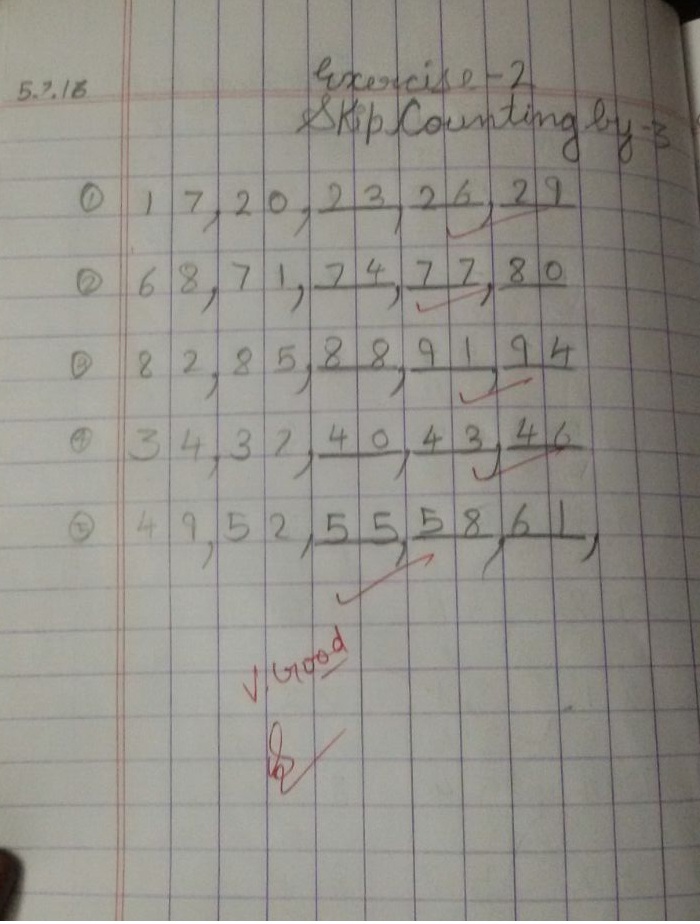 5.7.18
Exercise-2
Skip Counting by-3
① 17, 20, 23, 26, 29
② 68, 71, 74, 77, 80
③ 82, 85, 88, 91, 94
④ 34, 37, 40, 43, 46
⑤ 49, 52, 55, 58, 61,
V. Good